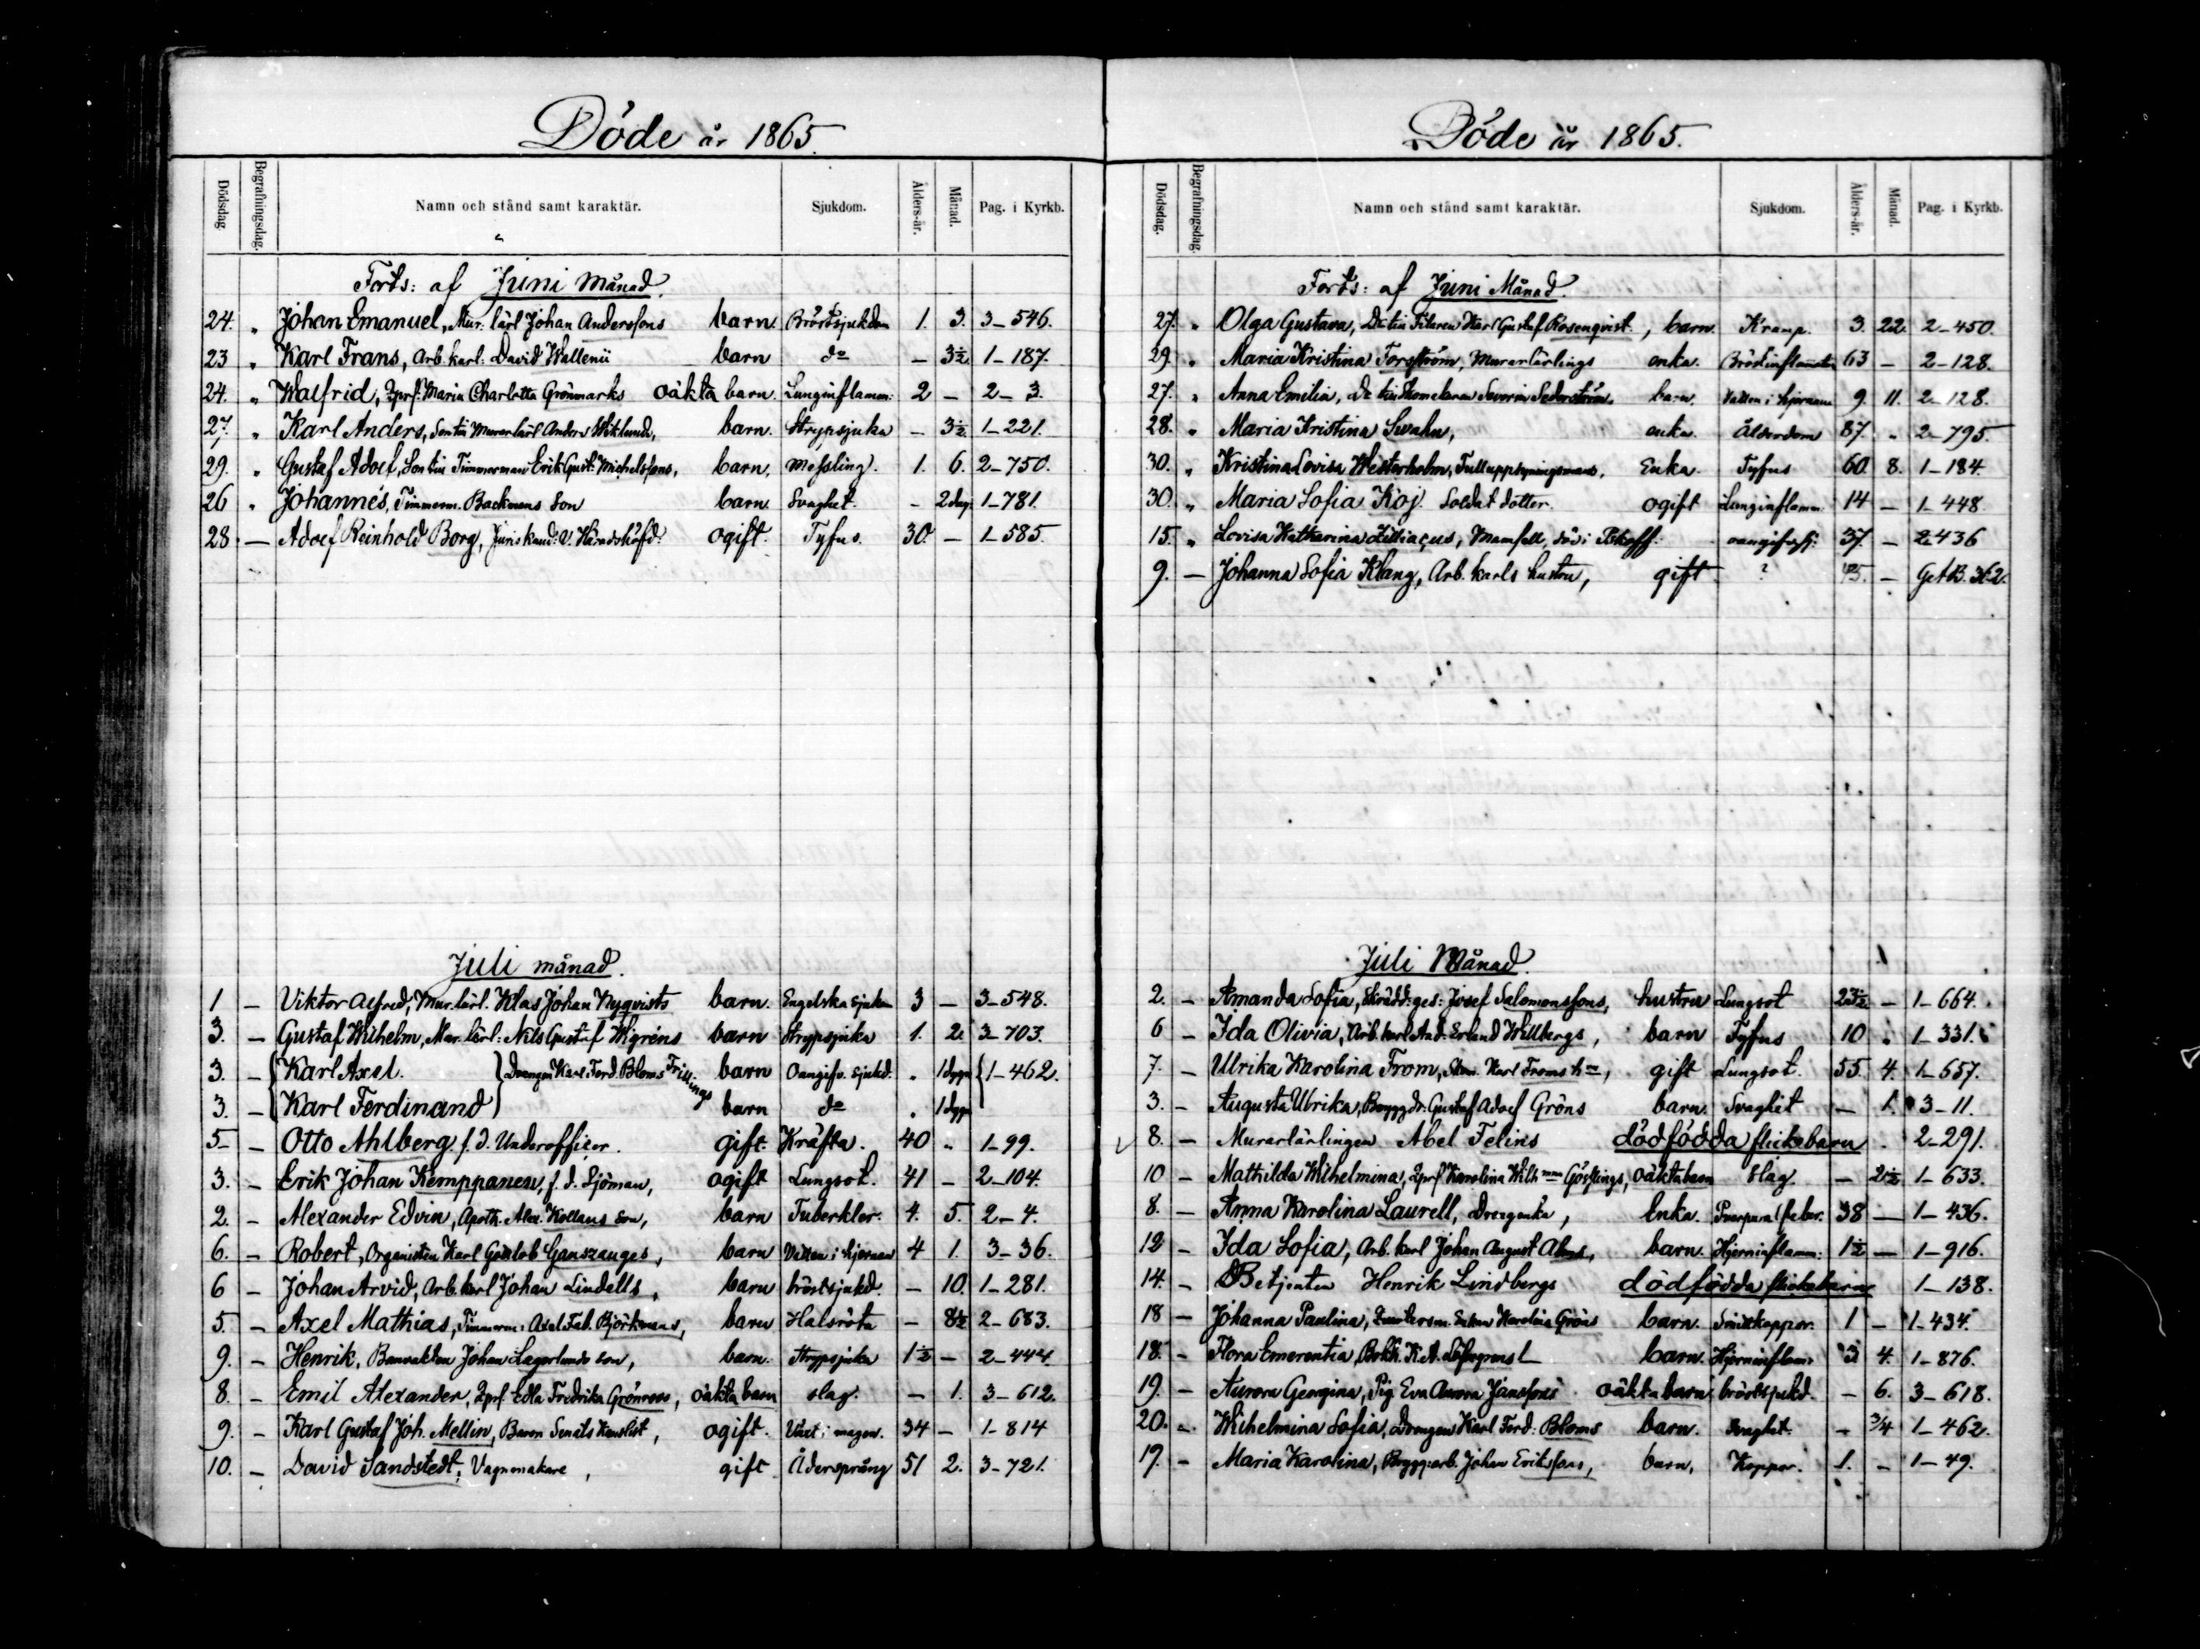 Döde år 1865.
Dödsdag
Begrafningsdag.
Namn och stånd samt karaktär.
Sjukdom.
Ålders-år.
Månad.
Pag. i Kyrkb.
Forts: af Juni Månad.
24. " Johan Emanuel, Mur. lärl Johan Anderssons barn Bröstsjukdom 1. 3. 3-546.
23 " Karl Frans, Arb. karl. David Wallenii barn do - 3½ 1-187.
24. " Walfrid, Maria Charlotta Grönmarks oäkta barn. Lunginflamm: 2 - 2-3.
27. " Karl Anders, Murarlärl Anders Wiklunds, barn. Strypsjuka - 3½ 1-221.
29. " Gustaf Adolf, Timmerman Erik Gust. Michelssons, barn. Messling. 1. 6. 2-750.
26 " Johannes, Timmerm. Backmans Son barn. Svaghet. - 2 dag. 1-781.
28. - Adolf Reinhold Borg, Juris kand: V. Häradshöfd: ogift. Tyfus. 30 - 1-585.
Juli månad.
1 - Viktor Alfred, Mur. lärl. Klas Johan Nyqvists barn. Engelska sjukan 3 - 3-548.
3. - Gustaf Wilhelm, Mur. lärl: Nils Gustaf Wigréns barn Strypsjuka 1. 2. 3-703.
3. - Karl Axel. Drengen Karl Ferd. Bloms Trillings barn Oangifv. sjukd. " 1 dygn 1-462.
3. - Karl Ferdinand barn do " 1 dygn
5 - Otto Ahlberg f. d. Underofficer. gift. Kräfta. 40 " 1-99.
3. - Erik Johan Kemppanen, f. d. Sjöman, ogift Lungsot. 41 - 2-104.
2. - Alexander Edvin, Apoth. Alex. Kollans Son, barn Tuberkler. 4. 5. 2-4.
6. - Robert, Organisten Karl Gottlob Ganszauges, barn Vatten i hjernan 4 1. 3-36.
6 - Johan Arvid, Arb. karl Johan Lindells, barn bröstsjukd. - 10. 1-281.
5. - Axel Mathias, Timmerm: Axel Fab. Björkmans, barn Halsröta - 8½ 2-683.
9. - Henrik, Banvakten Johan Lagerlunds son, barn. Strypsjuka 1½ - 2-444.
8. - Emil Alexander, Edla Fredrika Grönroos, oäkta barn slag. - 1. 3-612.
9. - Karl Gustaf Joh. Mellin, Baron Senats Kanslist, ogift. Växt i magen. 34 - 1-814
10. - David Sandstedt, Vagnmakare, gift Ådersprång 51 2. 3-721.
Döde år 1865.
Dödsdag.
Begrafningsdag.
Namn och stånd samt karaktär.
Sjukdom.
Ålders-år.
Månad.
Pag. i Kyrkb.
Forts: af Juni Månad.
27. " Olga Gustava, Karl Gustaf Rosenqvist, barn. Kramp. 3. 22. 2-450.
29. " Maria Kristina Forsström, Murarlärlings enka. Bröstinflammation 63 - 2-128.
27. " Anna Emilia, Severin Sederström. barn. Vatten i hjernan 9. 11. 2-128.
28. " Maria Kristina Swahn, enka. Ålderdom 87. " 2-795.
30. " Kristina Lovisa Westerholm, Tulluppsyningsmans. Enka. Tyfus 60. 8. 1-184.
30. " Maria Sofia Koj. Soldat dotter. ogift Lunginflamm: 14 - 1-448.
15. " Lovisa Katharina Zilliacus, Mamsell, död i Pskoff. 37. - 2-436
9. - Johanna Sofia Klang, Arb. karls hustru, gift ? 45. - Get B. 362.
Juli Månad.
2. - Amanda Sofia, Skrädd: ges: Josef Salomonssons, hustru Lungsot 23½ - 1-664.
6 - Ida Olivia, Arb. karl And. Erland Willbergs, barn Tyfus 10 " 1-331.
7. - Ulrika Karolina From, Karl Froms h-, gift Lungsot. 55. 4. 1-657.
3. - Augusta Ulrika, Gustaf Adolf Gröns barn. Svaghet - 1. 3-11.
8. - Murarlärlingen Abel Felins dödfödda flickebarn. 2-291.
10 - Mathilda Wilhelmina, Karolina Wilh-, oäkta barn slag. - 2½ 1-633.
8. - Anna Karolina Laurell, Drengenka, Enka. Puerperal feber. 38 - 1-436.
12 - Ida Sofia, Arb. karl Johan August Alms, barn. Hjerninflamm: 1½ - 1-916.
14. - Betjenten Henrik Lindbergs dödfödda flickebarn 1-138.
18 - Johanna Paulina, Enkan Karolina Gröns barn. Smittkoppor. 1 - 1-434.
18. - Flora Emerentia, Bokh. K. A. Löfgrens barn. Hjerninflam: 3 4. 1-876.
19. - Aurora Georgina, Pig. Eva Aurora Janssons oäkta barn bröstsjukd. - 6. 3-618.
20. - Wilhelmina Sofia, Drengen Karl Ferd: Bloms barn. Svaghet. - 3/4 1-462.
19. - Maria Karolina, Brygg: arb. Johan Erikssons, barn, Koppor. 1. - 1-49.